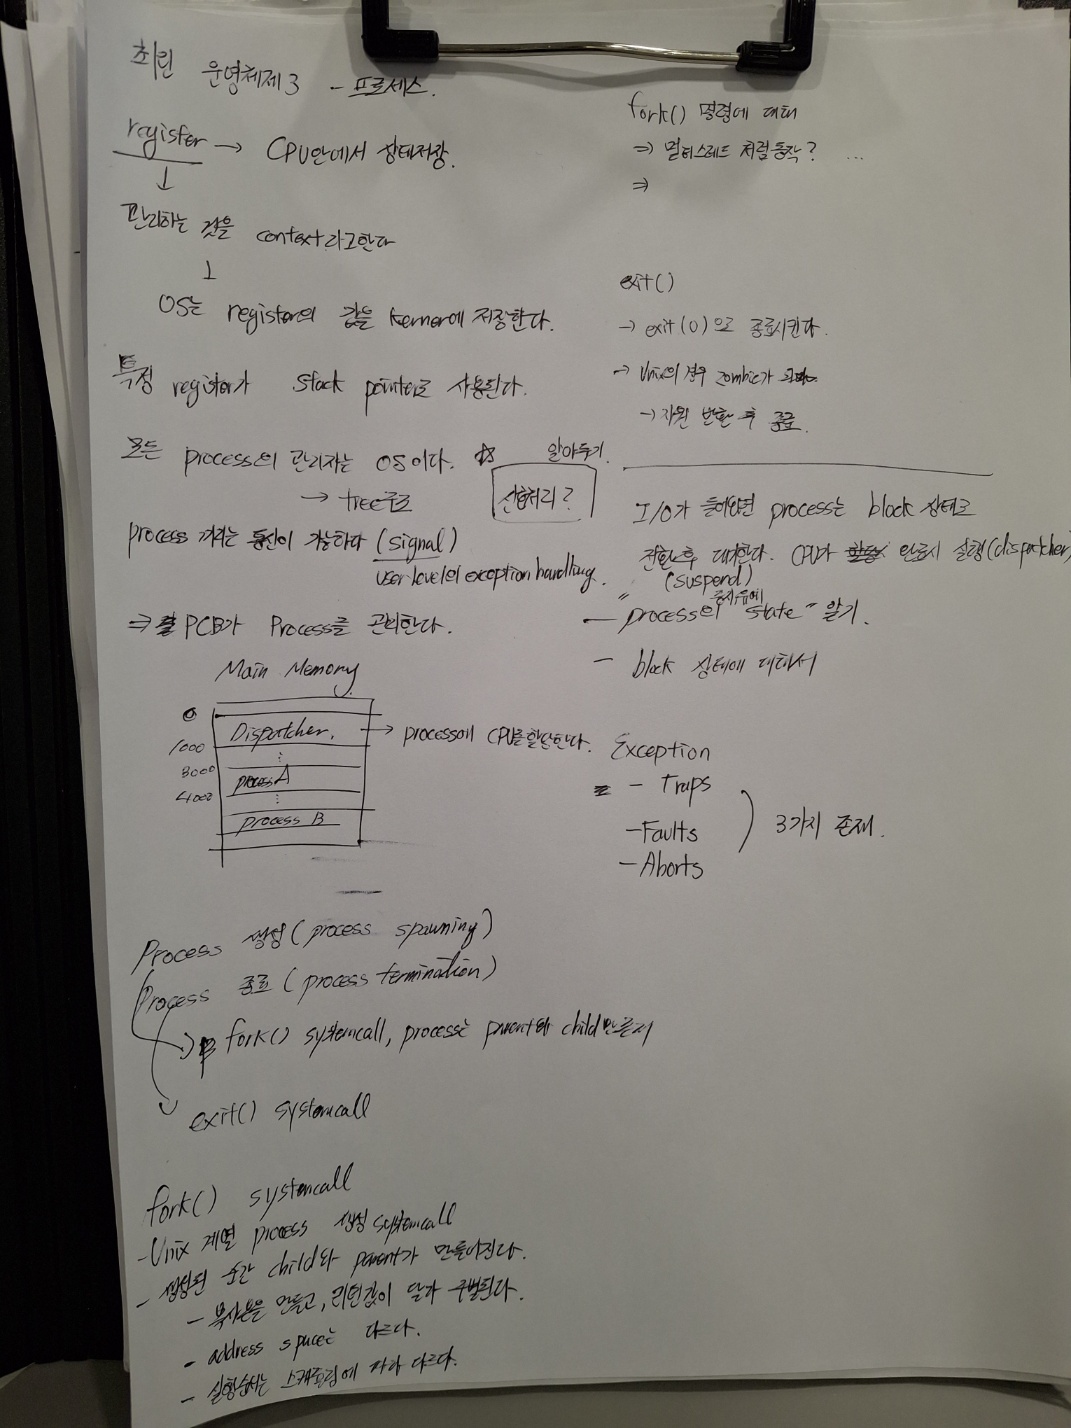 최린 운영체제 3 - 프로세스.
register → CPU안에서 상태저장.
↓
관리하는 값을 context라고한다
↓
OS는 register의 값을 kerner에 저장한다.
특정 register가 stack pointer로 사용된다.
모든 process의 관리자는 OS이다. ☆ 알아두기.
→ tree구조
신호처리?
process 끼리는 통신이 가능하다 (signal)
user level의 exception handling.
⇒ PCB가 Process를 관리한다.
Main Memory
0
Dispatcher. → process에 CPU를 할당한다.
1000
⋮
3000
process A
4000
⋮
process B
Process 생성 (process spawning)
Process 종료 (process termination)
fork() systemcall, process는 parent와 child 만들지
exit() systemcall
fork() systemcall
- Unix 계열 process 생성 systemcall
- 생성된 순간 child와 parent가 만들어진다.
- 복사본을 만들고, 리턴값이 달라 구별된다.
- address space는 다르다.
- 실행순서는 스케줄링에 따라 다르다.
fork() 명령에 대해
⇒ 멀티스레드 처럼 동작? ...
⇒
exit()
→ exit(0)으로 종료시킨다.
→ Unix의 경우 zombie가
→ 자원 반환 후 종료.
I/O가 들어오면 process는 block 상태로
전환 후 대기한다. CPU가 완료시 실행(dispatcher)
(suspend)
- process의 "state" 알기.
- block 상태에 대해서
Exception
- Traps
- Faults
- Aborts
3가지 존재.